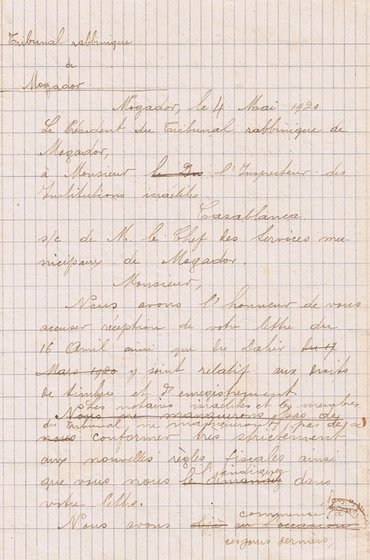 Tribunal rabbinique
de
Mogador
Mogador, le 4 Mai 1920
Le Président du Tribunal rabbinique de
Mogador,
à Monsieur le Do l'Inspecteur des
Institutions israélites
Casablanca
s/c de M. le Chef des Services mu-
nicipaux de Mogador.
Monsieur,
Nous avons l'honneur de vous
accuser réception de votre lettre du
16 Avril ainsi que du Dahir du 17
Mars 1920 y joint relatif aux droits
de timbre et d'enregistrement
Les notaires israélites et les membres
Nous manquerons pas de
du Tribunal, ne manqueront, pas de se
nous conformer très strictement
aux nouvelles règles fiscales ainsi
l'indiquez
que vous nous le demandez dans
votre lettre.
Nous avons déjà eu l'occasion
communiqué
ces jours derniers,